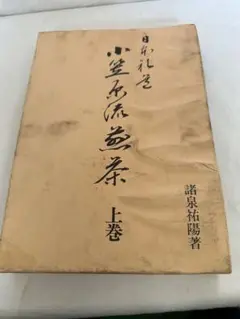 日本礼道
小笠原流煎茶
上巻
諸泉祐陽著